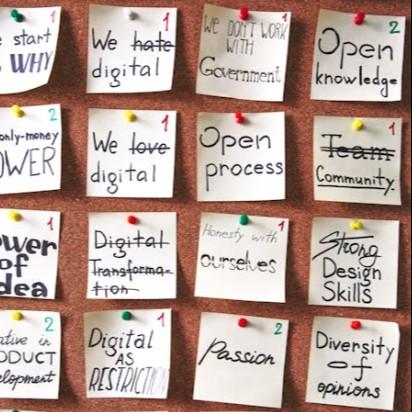 start
WHY
1
We hate
digital
1
We DON'T WORK
WITH
Government
1
Open
knowledge
2
only-money
OWER
2
We love
digital
1
Open
process
Team
Community
1
ower
of
dea
1
Digital
Transforma-
tion
Honesty with
ourselves
1
Strong
Design
Skills
ative in
ODUCT
elopment
2
Digital
AS
RESTRICTION
1
Passion
2
Diversity
of
opinions